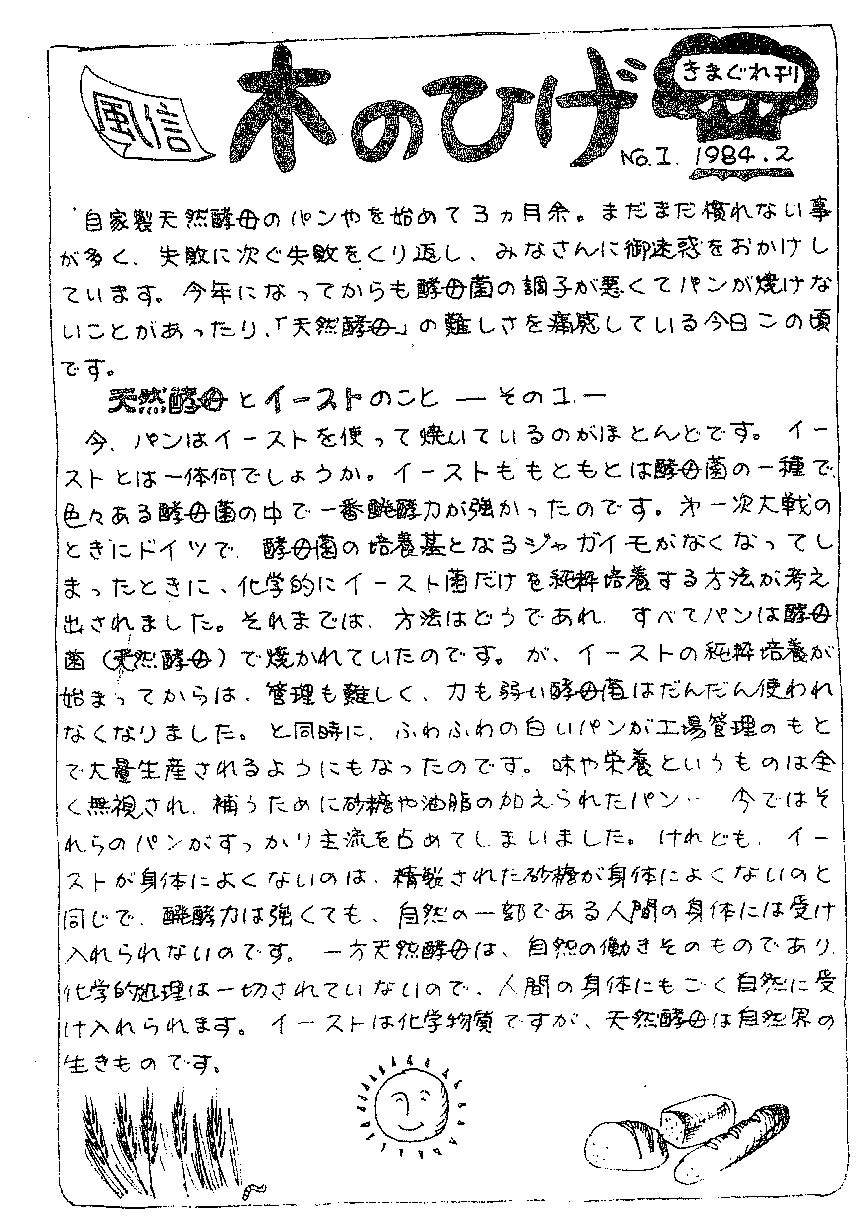 風信
木のひげ
きまぐれ刊
No.1. 1984.2
自家製天然酵母のパンやを始めて3ヵ月余。まだまだ慣れない事
が多く、失敗に次ぐ失敗をくり返し、みなさんに御迷惑をおかけし
ています。今年になってからも酵母菌の調子が悪くてパンが焼けな
いことがあったり、「天然酵母」の難しさを痛感している今日この頃
です。
天然酵母とイーストのこと ― その1 ―
今、パンはイーストを使って焼いているのがほとんどです。イー
ストとは一体何でしょうか。イーストももともとは酵母菌の一種で、
色々ある酵母菌の中で一番醗酵力が強かったのです。第一次大戦の
ときにドイツで、酵母菌の培養基となるジャガイモがなくなってし
まったときに、化学的にイースト菌だけを純粋培養する方法が考え
出されました。それまでは、方法はどうであれ、すべてパンは酵母
菌(天然酵母)で焼かれていたのです。が、イーストの純粋培養が
始まってからは、管理も難しく、力も弱い酵母菌はだんだん使われ
なくなりました。と同時に、ふわふわの白いパンが工場管理のもと
で大量生産されるようにもなったのです。味や栄養というものは全
く無視され、補うために砂糖や油脂の加えられたパン‥ 今ではそ
れらのパンがすっかり主流を占めてしまいました。けれども、イー
ストが身体によくないのは、精製された砂糖が身体によくないのと
同じで、醗酵力は強くても、自然の一部である人間の身体には受け
入れられないのです。一方天然酵母は、自然の働きそのものであり、
化学的処理は一切されていないので、人間の身体にもごく自然に受
け入れられます。イーストは化学物質ですが、天然酵母は自然界の
生きものです。